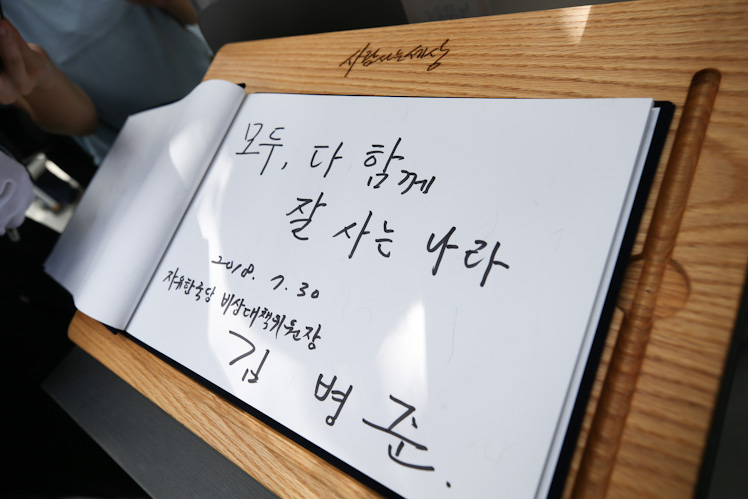 사람사는세상
모두, 다 함께
잘 사는 나라
2018. 7. 30
자유한국당 비상대책위원장
김 병 준.